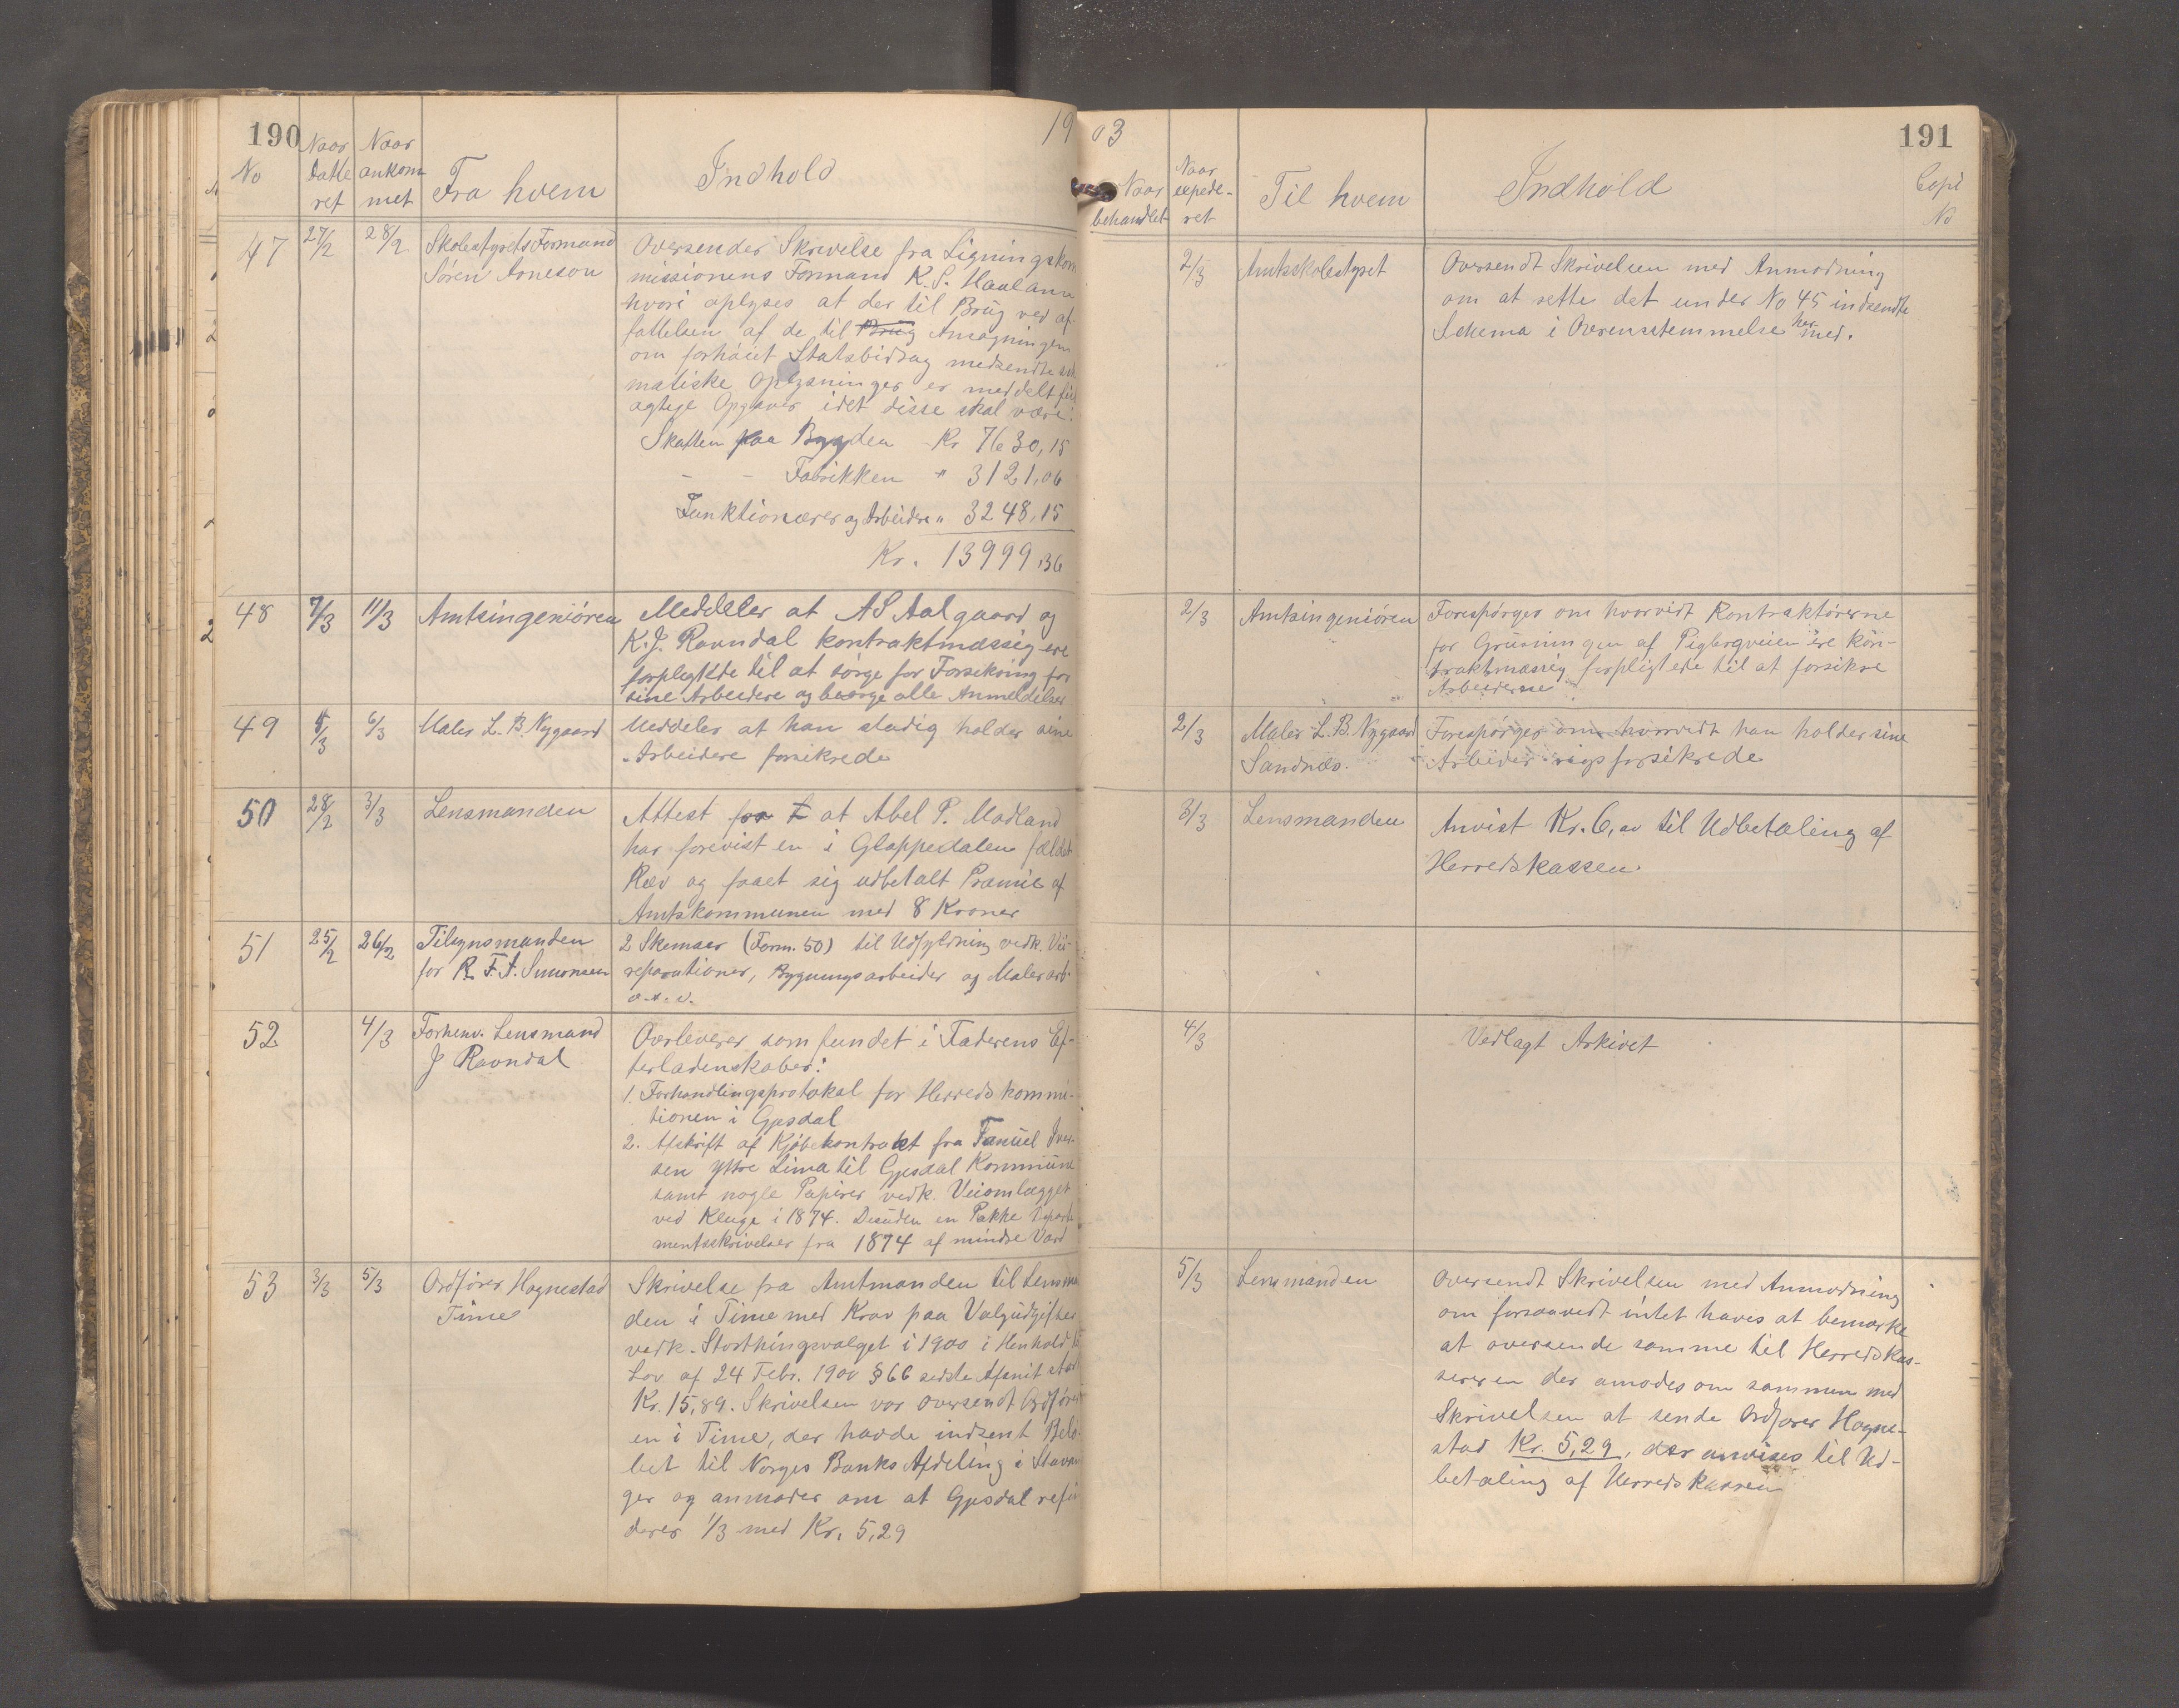 190
19
No
Naar
datte
ret
Naar
ankom
met
Fra hvem
Indhold
47
27/2
28/2
Skolestyrets Formand
Søren Arneson
Oversender Skrivelse fra Ligningskom
missionens Formand K. S. Haaland
hvori oplyses at der til Brug ved af
fattelsen af de til Brug Ansøgningen
om forhøiet Statsbidrag medsendte
matiske Oplysninger er meddelt
agtige Opgaver idet disse skal være:
Skatten paa Bygden Kr 7630,15
- - Fabrikken " 3121,06
Funktionærer og Arbeidere " 3248,15
Kr. 13999,36
48
7/3
11/3
Amtsingeniøren
Meddeler at AS Aalgaard og
K. J. Ravndal kontraktmæssig ere
forplegtede til at sørge for Forsikring for
sine Arbeidere og besørge alle Anmeldelser
49
5/3
6/3
Maler L. B. Nygaard
Meddeler at han stadig holder sine
Arbeidere forsikrede
50
28/2
3/3
Lensmanden
Attest for at Abel P. Madland
har forevist en i Gloppedalen fældet
Ræv og faaet sig udbetalt Præmie af
Amtskommunen med 8 Kroner
51
25/2
26/2
Tilsynsmanden
for R. F. T. Simonsen
2 Skemaer (Form. 50) til Udfyldning vedk. Vei-
reparationer, Bygningsarbeider og Malerarb.
o.s.v.
52
4/3
Forhenv. Lensmand
J Ravndal
Overleverer som fundet i Faderens Ef-
terladenskaber:
1. Forhandlingsprotokol for Herredskommi-
tionen i Gjesdal
2. Afskrift af Kjøbekontrakt fra Tanuel Iver-
sen Ytre Lima til Gjesdal Kommune
samt nogle Papirer vedk. Veiomlægget
ved Kluge i 1874. Desuden en Pakke Departe
mentsskrivelser fra 1874 af mindre Værd
53
3/3
5/3
Ordfører Hognestad
Time
Skrivelse fra Amtmanden til Lensman
den i Time med Krav paa Valgudgifter
vedk. Storthingsvalget i 1900 i Henhold til
Lov af 24 Febr. 1900 § 66 sidste Afsnit stor
Kr. 15,89. Skrivelsen var oversendt Ordfører
en i Time, der havde indsent Belø-
bet til Norges Banks Afdeling i Stavan
ger og anmoder om at Gjesdal refun
derer 1/3 med Kr. 5,29
03
191
Naar
behandlet
Naar
expede-
ret
Til hvem
Indhold
Copi
No
2/3
Amtsskolestyret
Oversendt Skrivelsen med Anmodning
om at rette det under No 45 indsendte
Schema i Overensstemmelse hermed.
2/3
Amtsingeniøren
Forespørges om hvorvidt Kontraktørerne
for Grusningen af veien ere kon-
traktmæssig forpligtede til at forsikre
Arbeiderne
2/3
Maler L. B. Nygaard
Sandnæs.
Forespørges om hvorvidt han holder sine
Arbeider rigsforsikrede
3/3
Lensmanden
Anvist Kr. 6,00 til Udbetaling af
Herredskassen.
4/3
Vedlagt Arkivet
5/3
Lensmanden
Oversendt Skrivelsen med Anmodning
om forsaavidt intet haves at bemærke
at oversende samme til Herredskas-
sereren der anmodes om sammen med
Skrivelsen at sende Ordfører Hogne-
stad Kr. 5,29, der anvises til Ud-
betaling af Herredskassen